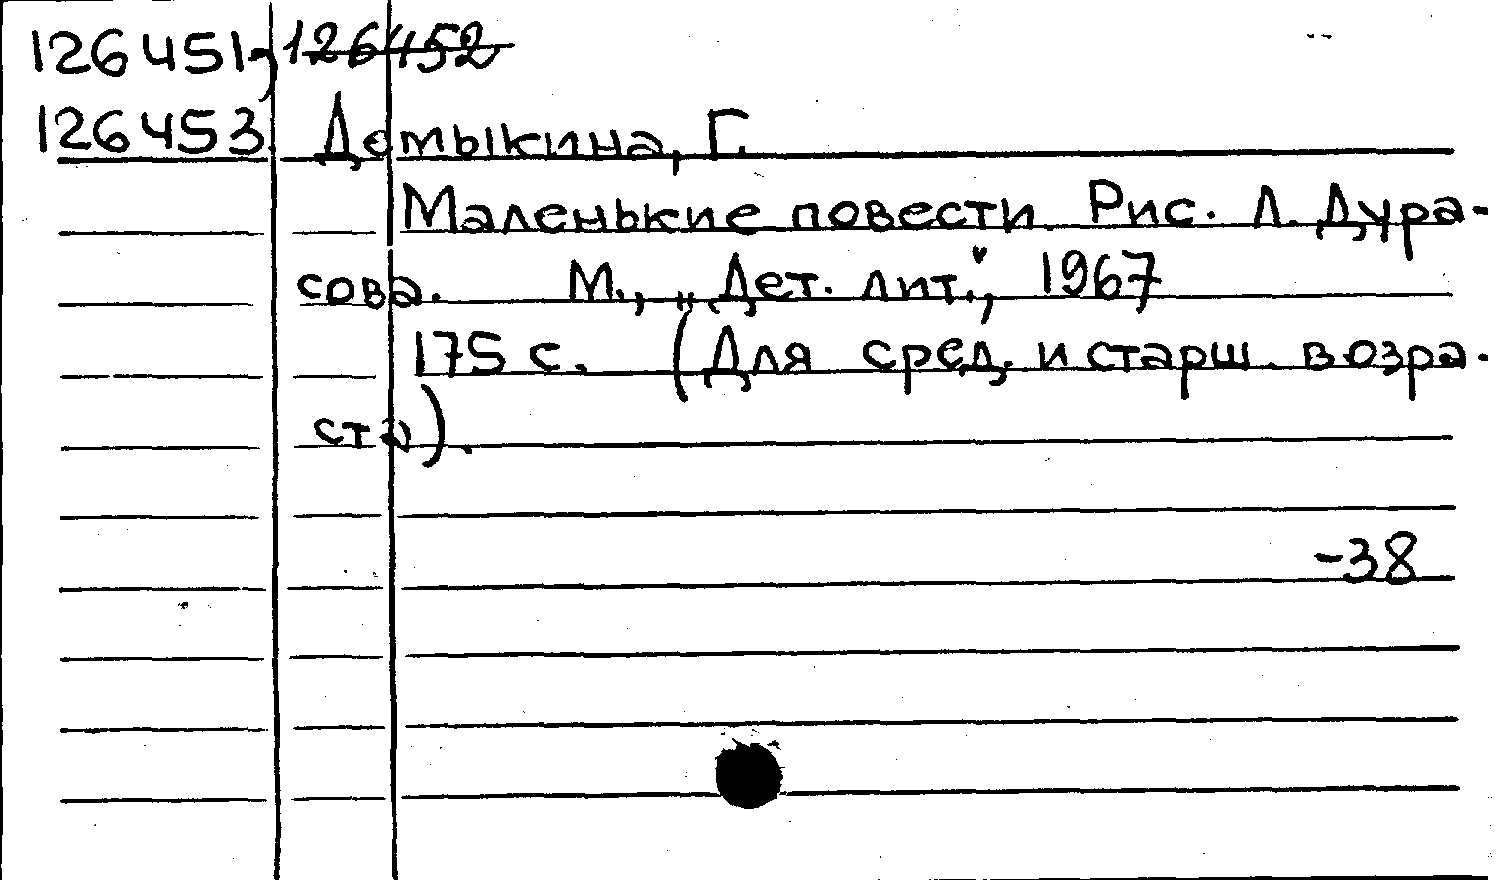 126451-, 126452
126453. Демыкина, Г.
Маленькие повести. Рис. Л. Дура-
сова. М., „Дет. лит.", 1967
175 с. (Для сред. и старш. возра-
ста).
-38